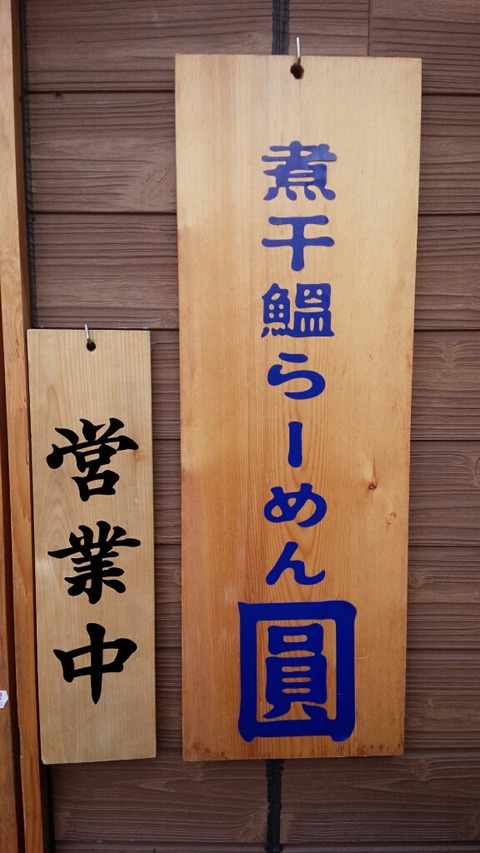 煮干鰮らーめん圓
営業中